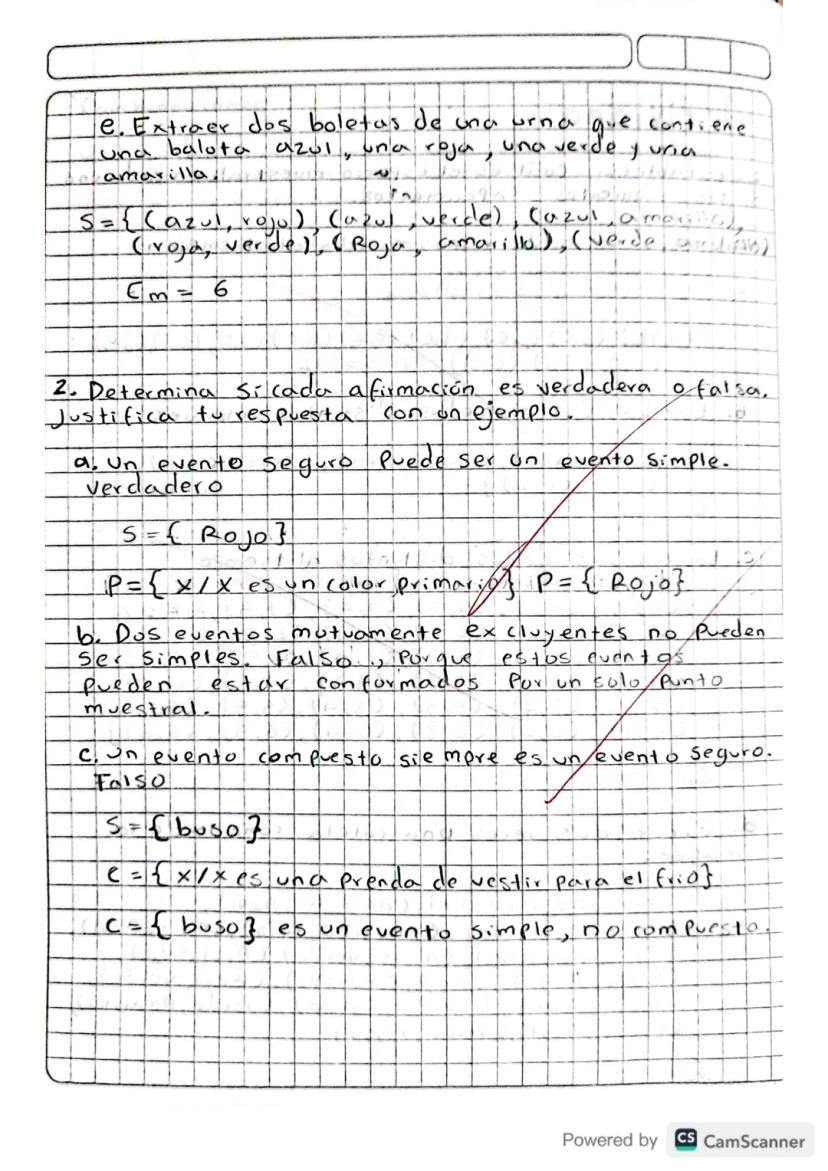 e. Extraer dos boletas de una urna que contiene
una balota azul, una roja, una verde y una
amarilla.
S={(azul, rojo), (azul, verde), (azul, amarilla),
(roja, verde), (Roja, amarillo), (verde,
Em = 6
2. Determina si cada afirmación es verdadera o falsa.
Justifica tu respuesta con un ejemplo.
a. Un evento seguro puede ser un evento simple.
verdadero
S={ Rojo}
P={ x/x es un color primario} P={ Rojo}
b. Dos eventos mutuamente excluyentes no pueden
ser simples. Falso., porque estos eventos
pueden estar conformados por un solo punto
muestral.
c. Un evento compuesto siempre es un evento seguro.
Falso
S={buso}
C={x/x es una prenda de vestir para el frio}
C={ buso} es un evento simple, no compuesto.
Powered by CS CamScanner